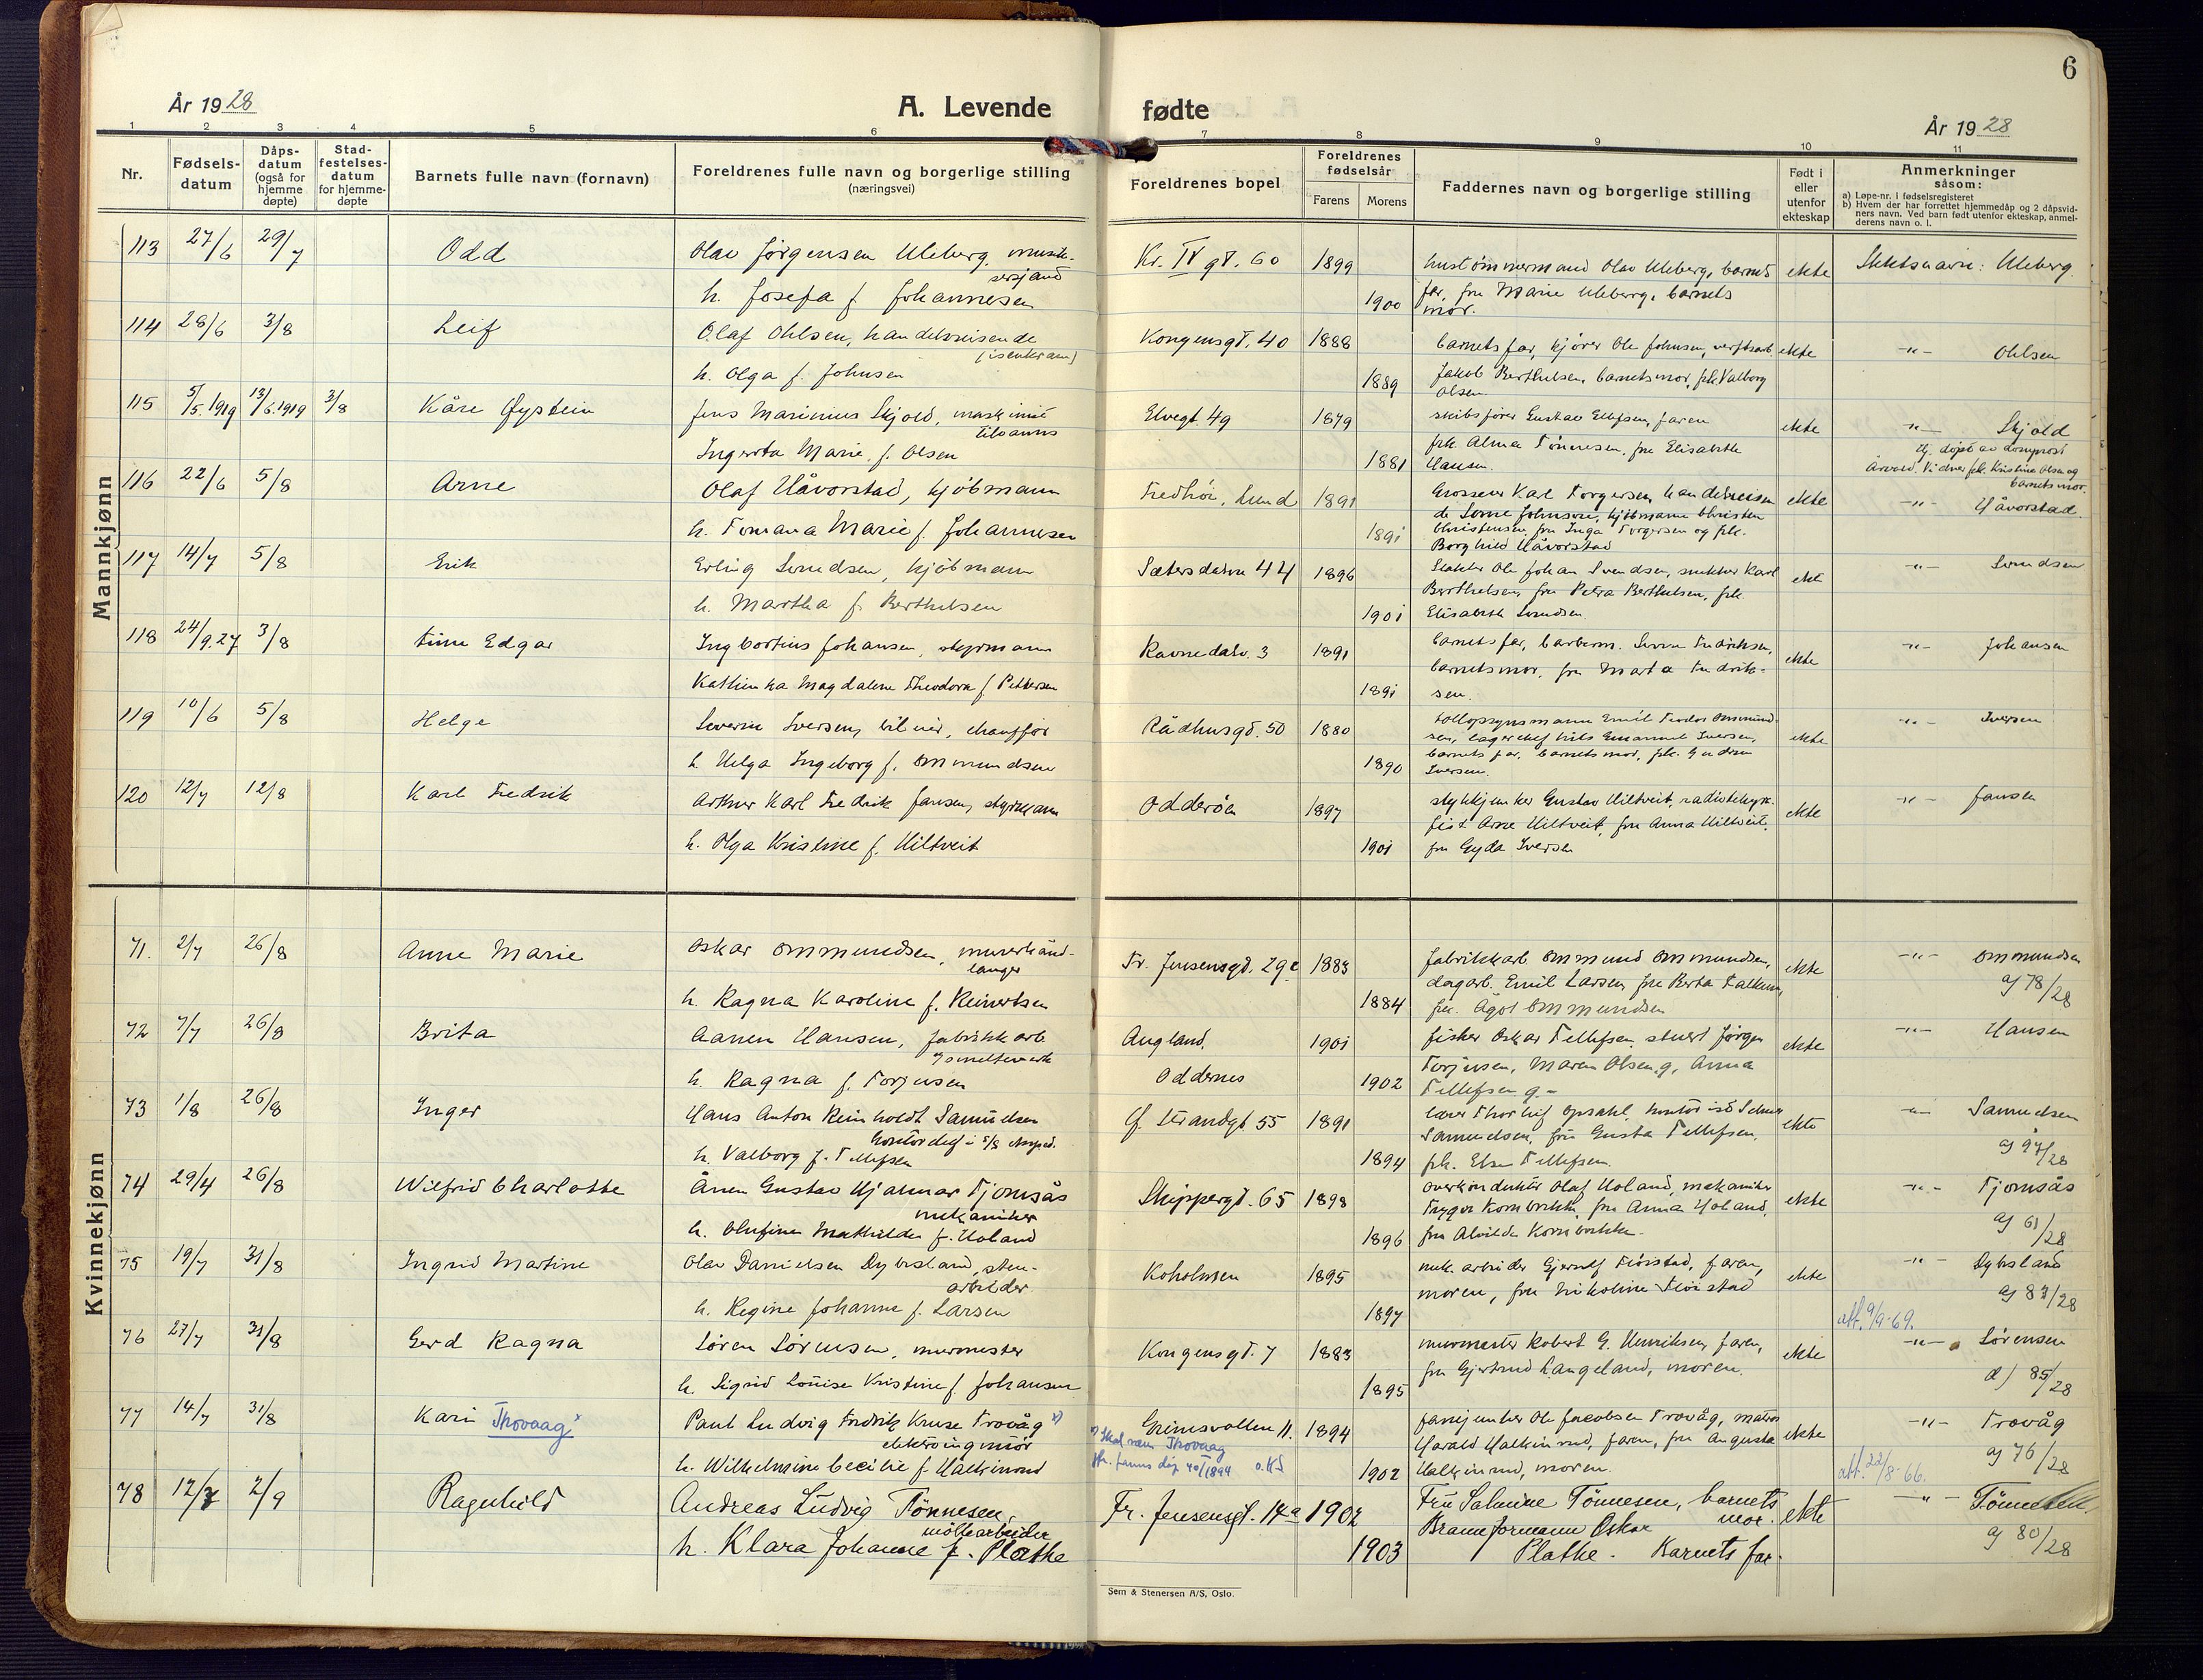 6
År 1928
A. Levende fødte
År 1928
1 2 3 4 5 6 7 8 9 10 11
Nr.
Fødsels-datum
Dåps-datum (også for hjemme døpte)
Stad-festelses-datum for hjemme-døpte
Barnets fulle navn (fornavn)
Foreldrenes fulle navn og borgerlige stilling (næringsvei)
Foreldrenes bopel
Foreldrenes fødselsår
Farens Morens
Faddernes navn og borgerlige stilling
Født i eller utenfor ekteskap
Anmerkninger såsom:
a) Løpe-nr. i fødselsregisteret
b) Hvem der har forrettet hjemmedåp og 2 dåpsvid-
ners navn. Ved barn født utenfor ekteskap, anmel-
derens navn o. l.
Mannkjønn
113 27/6 29/7 Odd Olav Jørgensen Uleberg, musik- Kr. IV gt. 60 1899 Olav Uleberg, barnets ekte Slektsnavn: Uleberg.
sersjant
h. Josefa f. Johannesen 1900 far, fru Marie Uleberg, barnets
mor.
114 28/6 3/8 Leif Olaf Ohlsen, handelsreisende Kongensgt. 40 1888 barnets far, kjører Ole Johnsen, ekte -"- Ohlsen
(isenkram)
h. Olga f. Johnsen 1889 Jakob Berthelsen, barnets mor, frk Valborg
Olsen.
115 5/5.1919 13/6.1919 3/8 Kåre Øystein Jens Marinius Skjold, maskinist Elvegt. 49 1879 skibsfører Gustav Ellefsen, faren ekte -"- Skjold
Ingerta Marie f. Olsen 1881 frk. Alma Tønnesen, fru Elisabeth
Hansen. Hj. døpt av domprost
Vidner frk. Kristine Olsen og
barnets mor.
116 22/6 5/8 Arne Olaf Håvorstad, kjøbmann Lund 1891 Grosserer Karl Torgersen, handelsreisen ekte -"- Håvorstad.
h. Tomana Marie f. Johannesen 1891 de Johnsen, kjøbmann Christen
Christensen, fru Inga Torgersen og frk.
Borghild Håvorstad
117 14/7 5/8 Erik Erling Svendsen, kjøbmann Setersdalsv. 44 1896 Ole Johan Svendsen, snekker Karl ekte -"- Svendsen
h. Martha f. Berthelsen 1901 Berthelsen, fru Petra Berthelsen, frk.
Elisabeth Svendsen.
118 24/9.27 3/8 Edgar Ingbortius Johansen, styrmann Ravnedalsv. 3 1891 barnets far, barberm. Fredriksen, ekte -"- Johansen
Kathinka Magdalene Theodora f. Pettersen 1891 barnets mor, fru Marta Fredrik-
sen.
119 10/6 5/8 Helge Severin Iversen, bileier, chauffør Rådhusgt. 50 1880 tollopsynsmann Emil Teodor Ommund- ekte -"- Iversen
h. Helga Ingeborg f. Ommundsen 1890 sen, lagerchef Nils Emanuel Iversen,
barnets far, barnets mor, frk. Gudrun
Iversen.
120 12/7 12/8 Karl Fredrik Arthur Karl Fredrik Jansen, styrmann Odderøen 1897 stykkjunker Gustav Hiltveit, radiotelegra- ekte -"- Jansen
h. Olga Kristine f. Hiltveit 1901 fist Arne Hiltveit, fru Anna Hiltveit,
fru Gyda Iversen
Kvinnekjønn
71. 2/7 26/8 Anne Marie Oskar Ommundsen, murerhånd- Fr. Jensensgt. 29c 1883 fabrikkarb. Ommund Ommundsen, ekte -"- Ommundsen
langer
h. Ragna Karoline f. Reinertsen 1884 dagarb. Emil Larsen, fru Berta a) 78/28
frk. Ågot Ommundsen
72 7/7 26/8 Brita Aanen Hansen, fabrikkarb. Augland, 1901 fisker Oskar Tellefsen, stuert Jørgen ekte -"- Hansen
h. Ragna f. Torjusen Oddernes 1902 Torjusen, Maren Olsen, g, Anna
Tellefsen g -
73 1/8 26/8 Inger Hans Anton Reinholdt Samuelsen Ø. Strandgt. 55 1891 lærer Thorleif Opsahl, kontorist ekte -"- Samuelsen
h. Valborg f. Tellefsen 1894 Samuelsen, fru Gusta Tellefsen, a) 97/28
frk. Else Tellefsen.
74 29/4 26/8 Wilfrid Charlotte Ånen Gustav Hjalmar Tjomsås Skippergt. 65 1898 overkonduktør Olaf Holand, mekaniker ekte -"- Tjomsås
mekaniker
h. Olufine Mathilde f. Holand 1896 Trygve Kornbrekke, fru Anna Holand, a) 61/28
fru Alvilde Kornbrekke.
75 19/7 31/8 Ingrid Martine Olav Danielsen Dybsland, sten- Koholmen 1895 mek. arbeider Gjerulf Fløistad, faren, ekte -"- Dybsland
arbeider
h. Regine Johanne f. Larsen 1897 moren, fru Nikoline Fløistad a) 83/28
att. 9/9-69.
76 27/7 31/8 Gerd Ragna Søren Sørensen, murmester Kongensgt. 7 1883 murmester Robert G. Henriksen, faren, ekte -"- Sørensen
h. Sigrid Louise Kristine f. Johansen 1895 fru Gjertrud Langeland, moren. a) 85/28
77 14/7 31/8 Kari Thovaag x Paul Ludvig Fredrik Kruse Trovåg x) Grimsvollen 11. 1894 fanejunker Ole Jacobsen Trovåg, matros ekte -"- Trovåg
elektroingeniør x) Skal være Thovaag
h. Wilhelmine Cecilie f. Halkinrud 40/1894 o.KS 1902 Harald Halkinrud, faren, fru Augusta a) 76/28
Halkinrud, moren. att. 22/8-66.
78 12/7 2/9 Ragnhild Andreas Ludvig Tønnesen, Fr. Jensensgt. 14a 1902 Fru Salmine Tønnesen, barnets ekte -"- Tønnesen
møllearbeider mor.
h. Klara Johanne f. Plathe 1903 Brannformann Oskar
Plathe. Barnets far. a) 80/28
Sem & Stenersen A/S, Oslo.